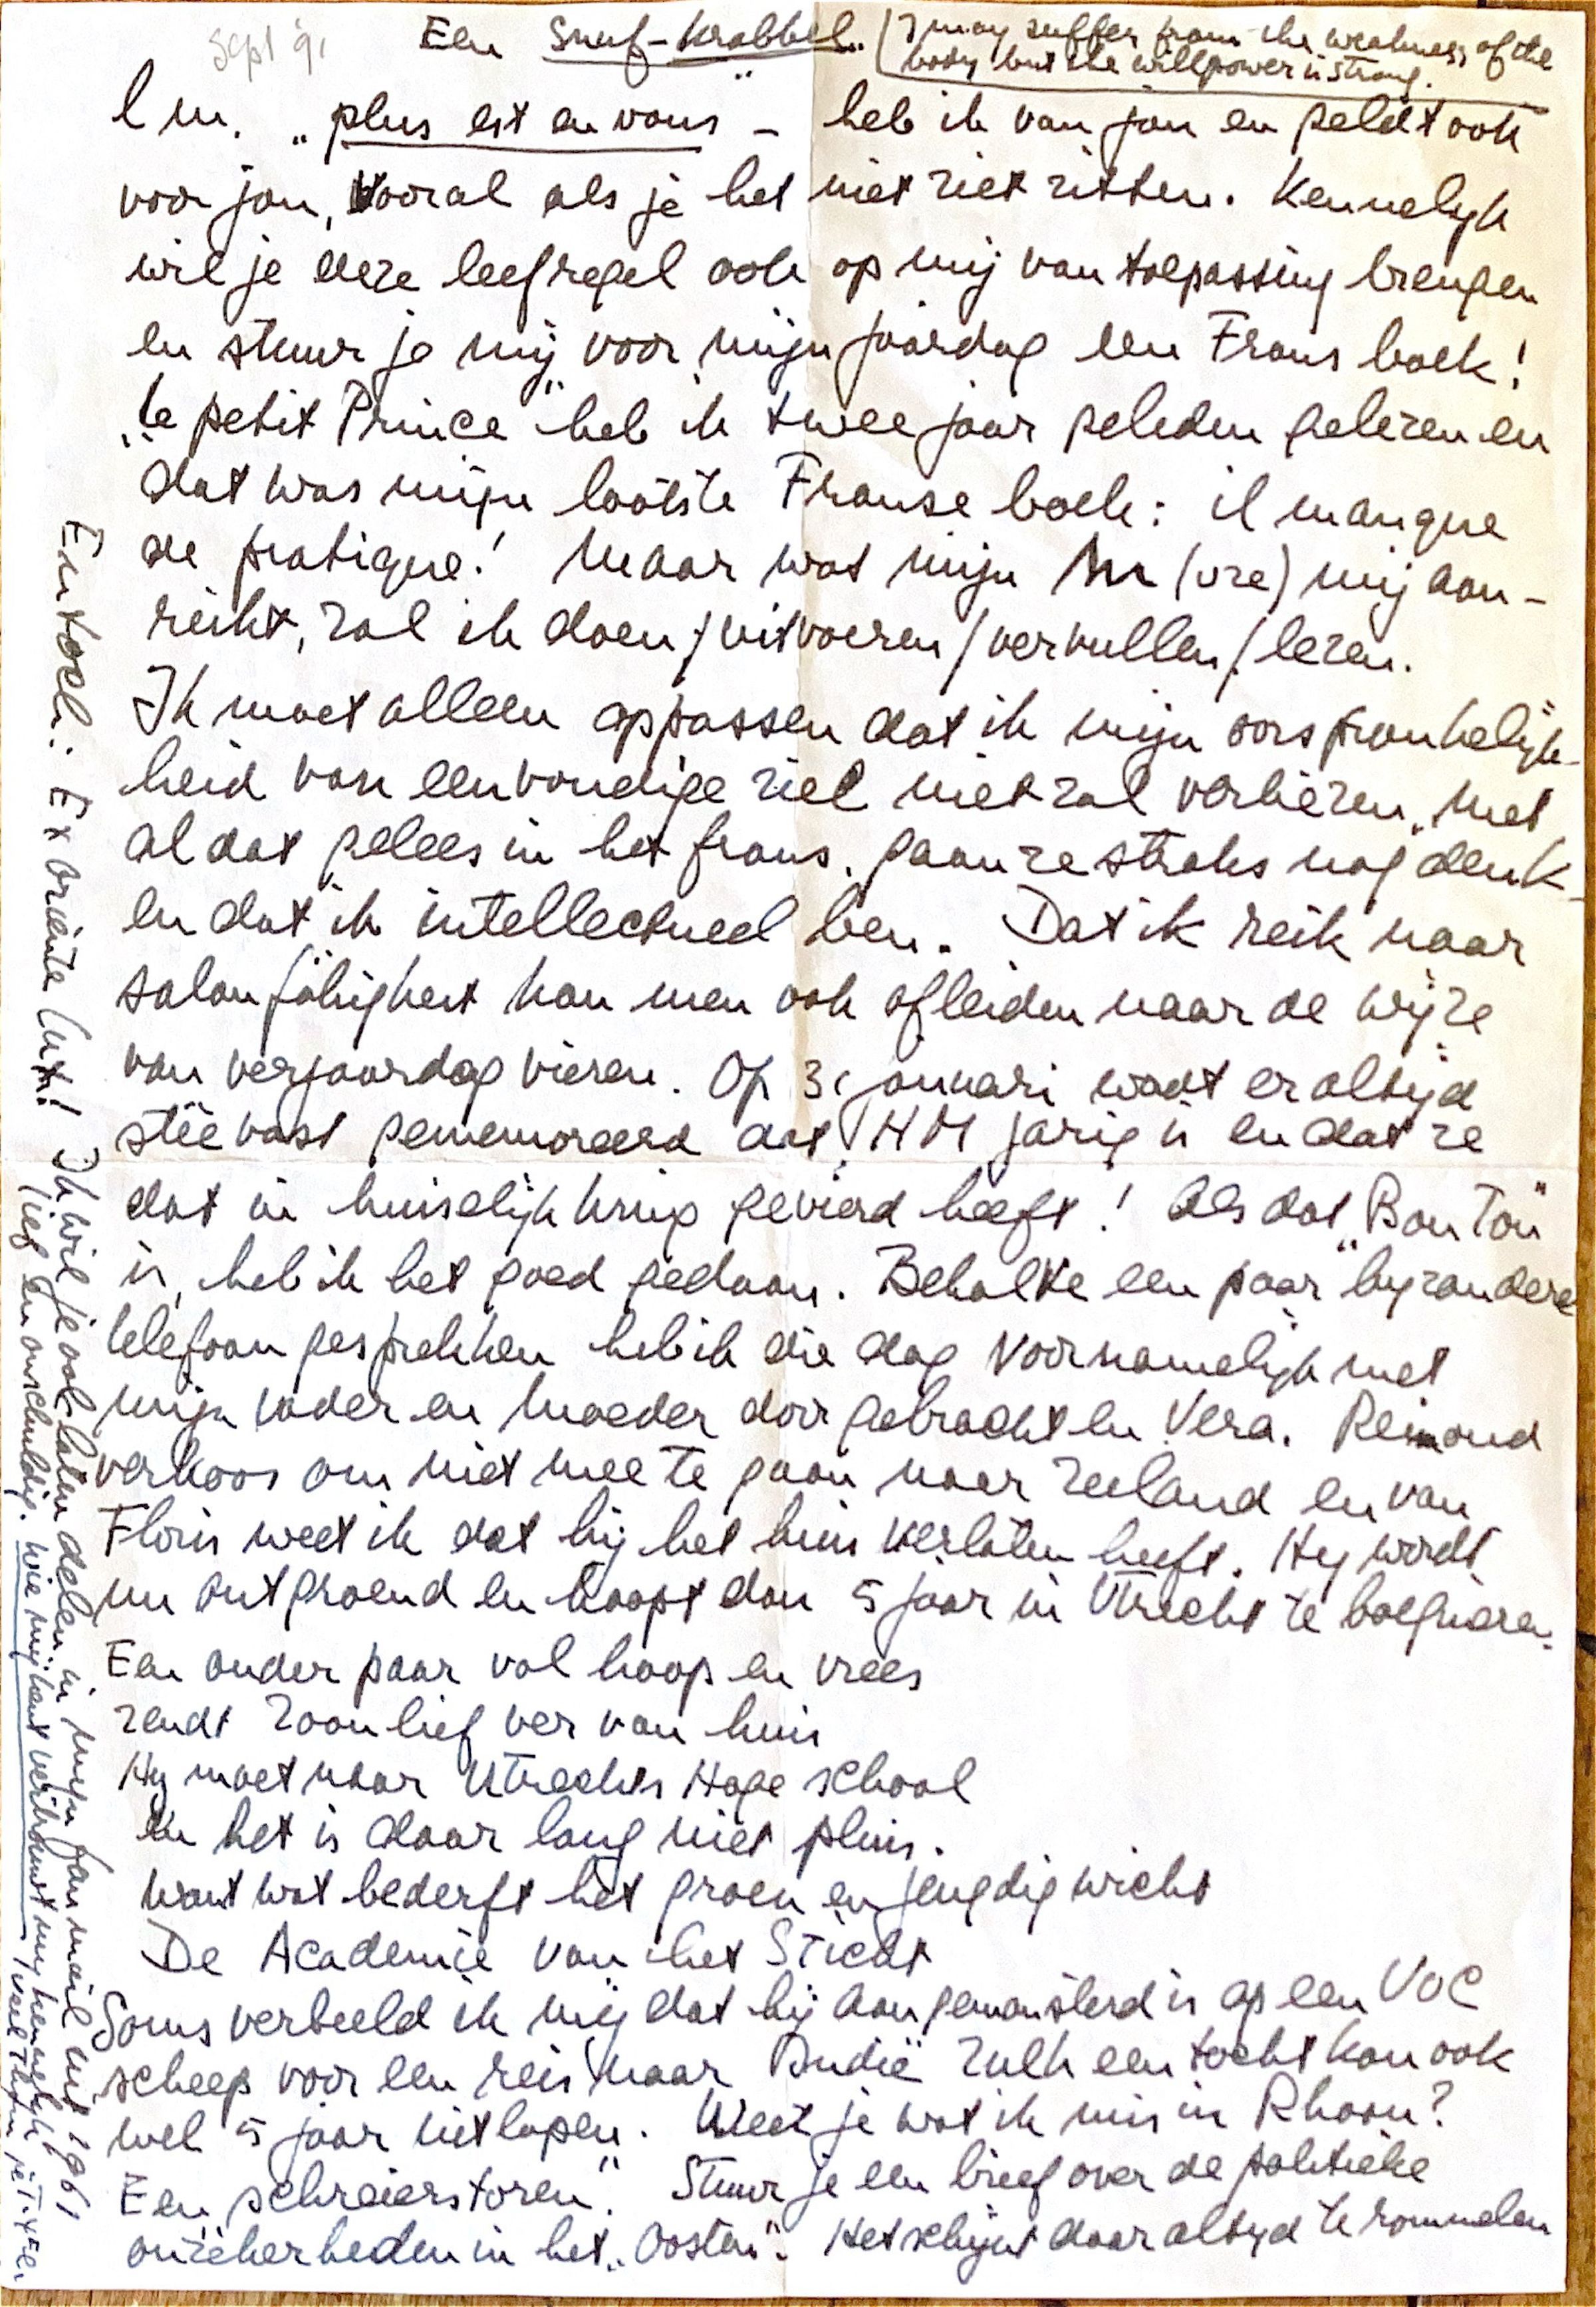 Sept 91
Een Snuf-krabbel..
I may suffer from the weakness of the
body but the willpower is strong.
l m. „plus est en vous" – heb ik van jou en geldt ook
voor jou, vooral als je het niet ziet zitten. Kennelijk
wil je deze leefregel ook op mij van toepassing brengen
en stuur je mij voor mijn jaardag een Frans boek!
„le petit Prince" heb ik twee jaar geleden gelezen en
dat was mijn laatste Franse boek: il manque
de pratique! Maar wat mijn M (uze) mij aan-
reikt, zal ik doen / uitvoeren / vervullen / lezen.
Ik moet alleen oppassen dat ik mijn oorspronkelijk-
heid van eenvoudige ziel niet zal verliezen, met
al dat gelees in het frans. gaan ze straks nog denk-
en dat ik intellectueel ben. Dat ik reik naar
salonfähigheit kan men ook afleiden naar de wijze
van verjaardag vieren. Op 31 januari wordt er altijd
steevast gememoreerd dat HM jarig is en dat ze
dat in huiselijk kring gevierd heeft! Als dat „Bon Ton"
is, heb ik het goed gedaan. Behalve een paar byzondere
telefoon gesprekken heb ik die dag voornamelijk met
mijn vader en moeder door gebracht en Vera. Reimond
verkoos om niet mee te gaan naar Zeeland en van
Floris weet ik dat hij het huis verlaten heeft. Hy wordt
nu ontgroend en hoopt dan 5 jaar in Utrecht te bivakkeren.
Een ouder paar vol hoop en vrees
zendt zoon lief ver van huis
Hy moet naar Utrechts Hoge school
en het is daar lang niet pluis.
want wat bederft het groen en jeugdig wicht
De Academie van het Sticht
Soms verbeeld ik mij dat hij aangemonsterd is op een VOC
scheep voor een reis naar Indië zulk een tocht kan ook
wel 5 jaar uitlopen. Weet je wat ik mis in Rhoon?
Een „schreierstoren". Stuur je een brief over de politieke
onzekerheden in het „Oosten". Het schijnt daar altyd te rommelen
En toch: Ex oriënte lux!! Ik wil je ook laten delen in mijn fan mail uit 1961
lief en onschuldig. wie mij kent verkwist mij kennelijk